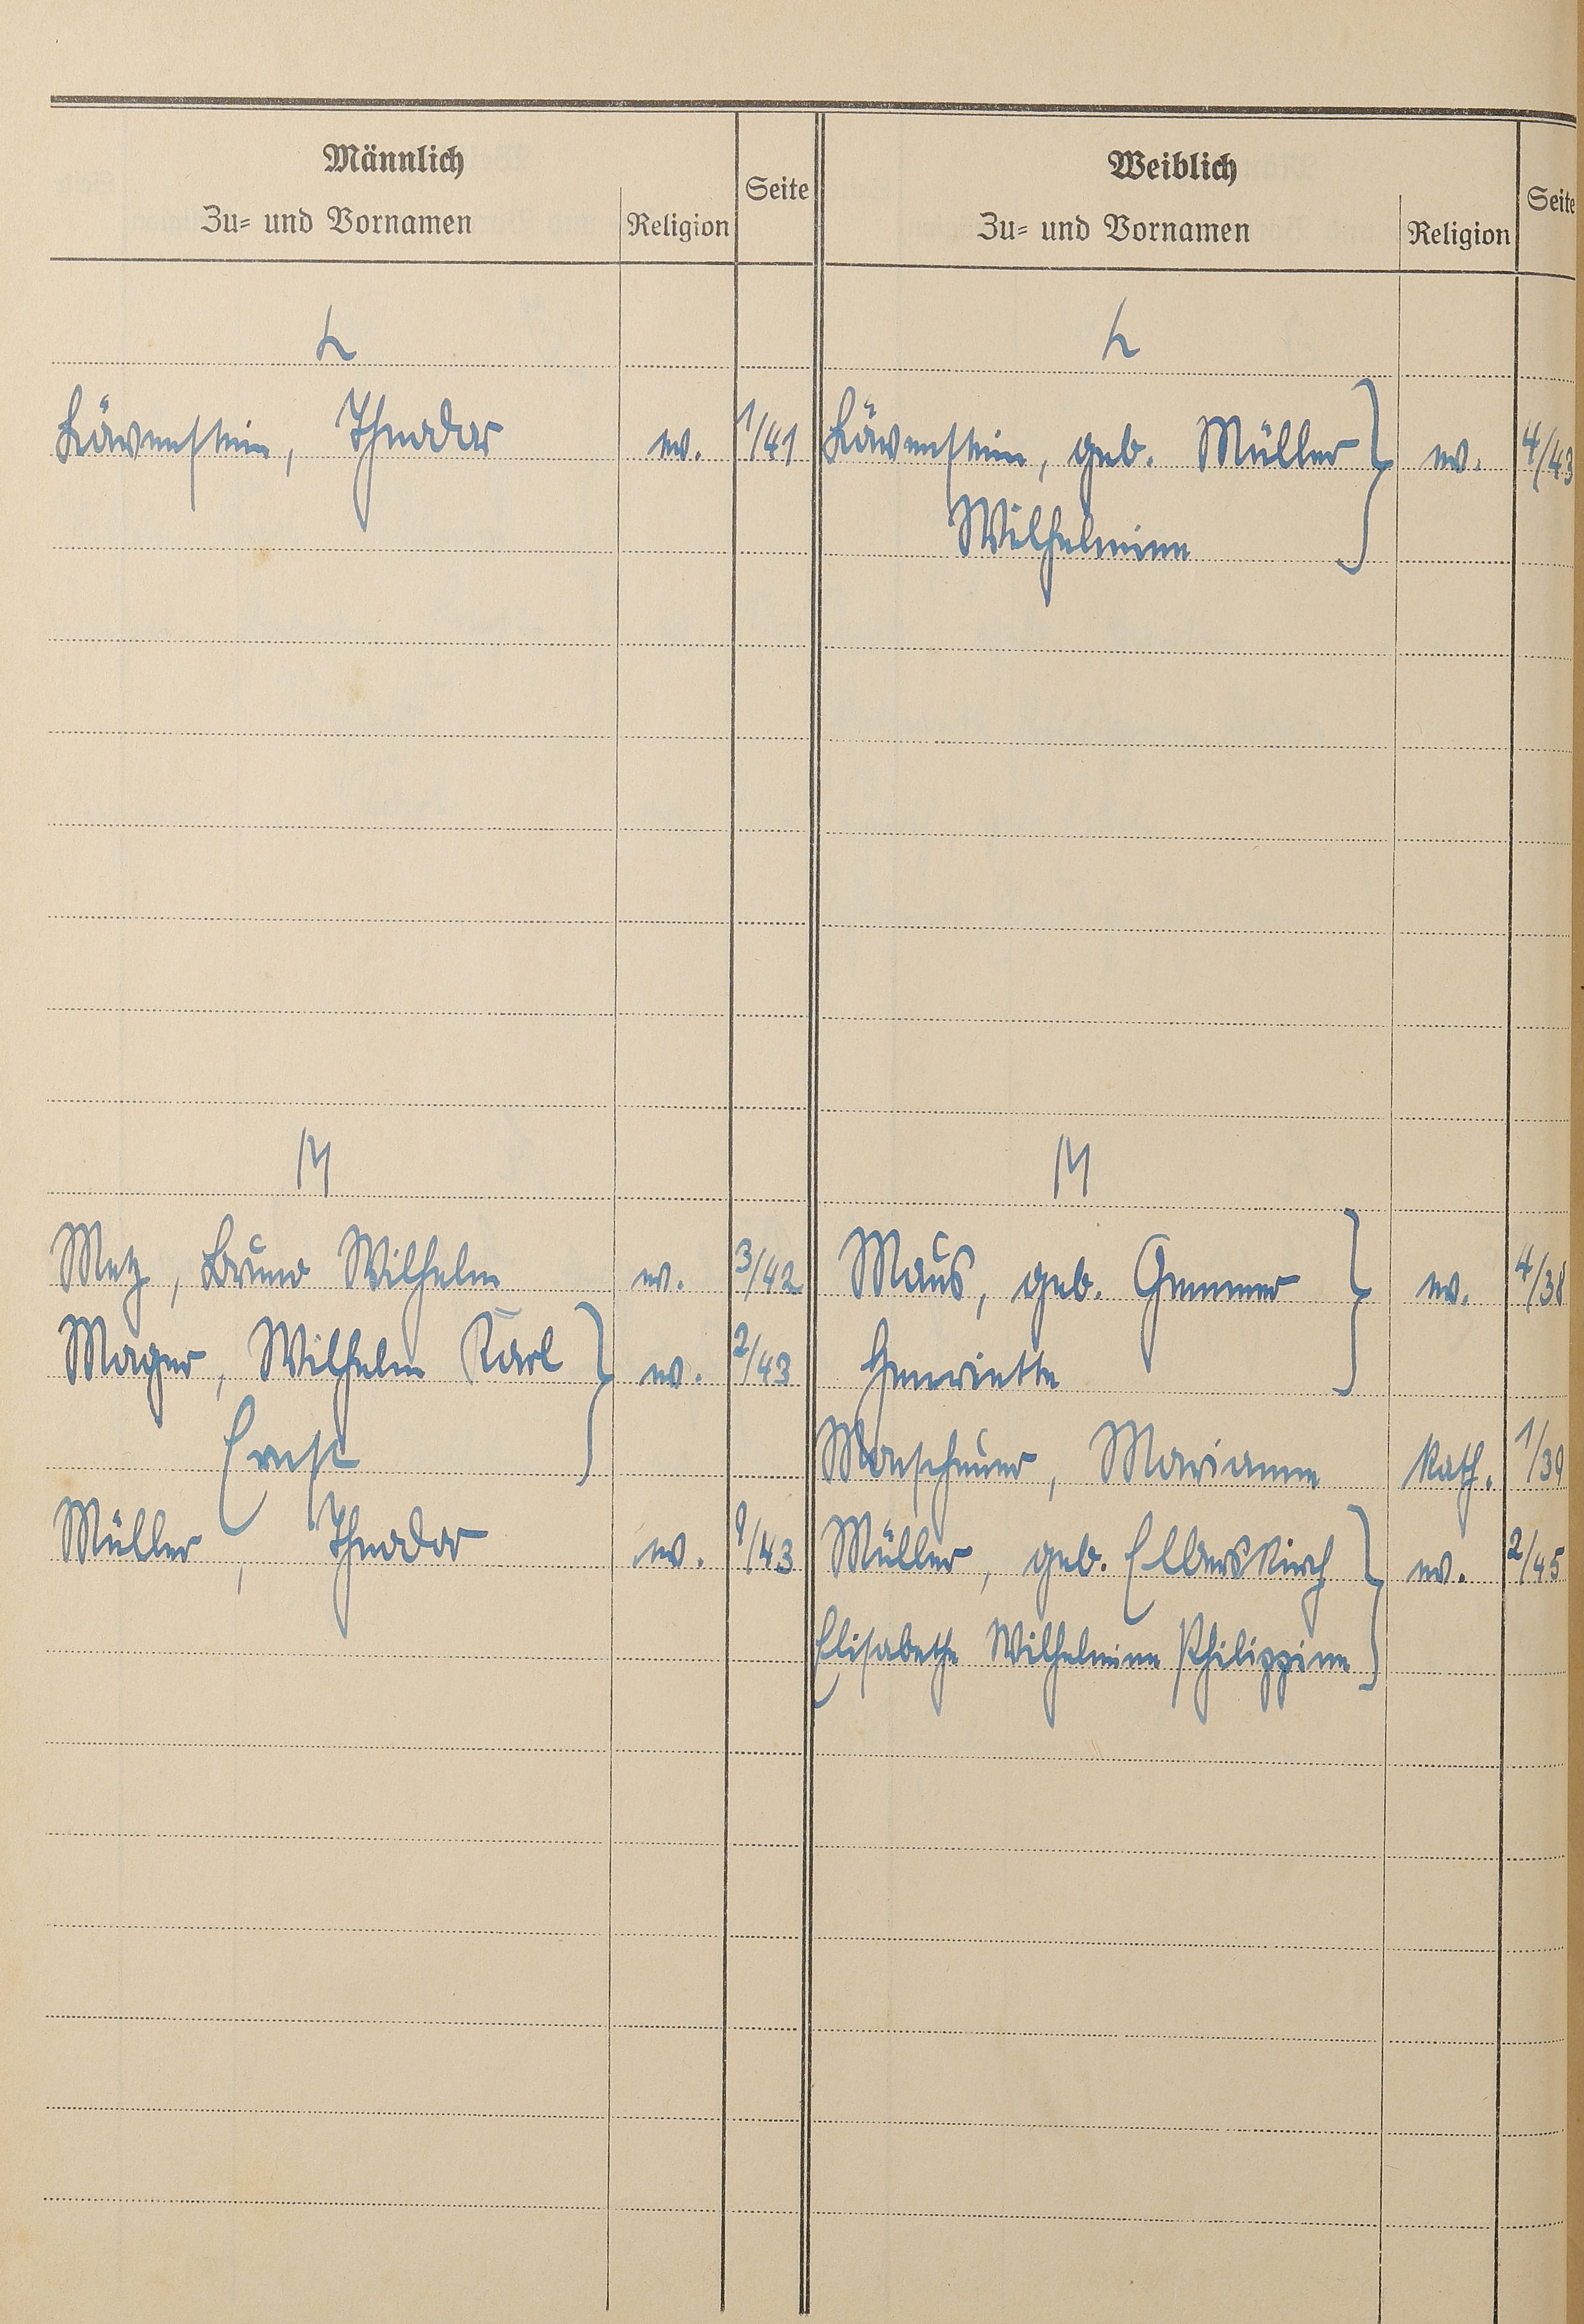 Männlich
Zu- und Vornamen
Religion
Seite
Weiblich
Zu- und Vornamen
Religion
Seite
L
L
Lävenstein, Theodor ev. 1/41
Lävenstein, geb. Müller ev. 4/43
Wilhelmine
M
M
Metz, Bruno Wilhelm ev. 3/42
Maus, geb. Gemmer ev. 4/38
Mager, Wilhelm Karl ev. 2/43
Henriette
Ernst
Monscheuer, Marianne Kath. 1/39
Müller, Theodor ev. 9/43
Müller, geb. Elberskirch ev. 2/45
Elisabethe Wilhelmine Philippine